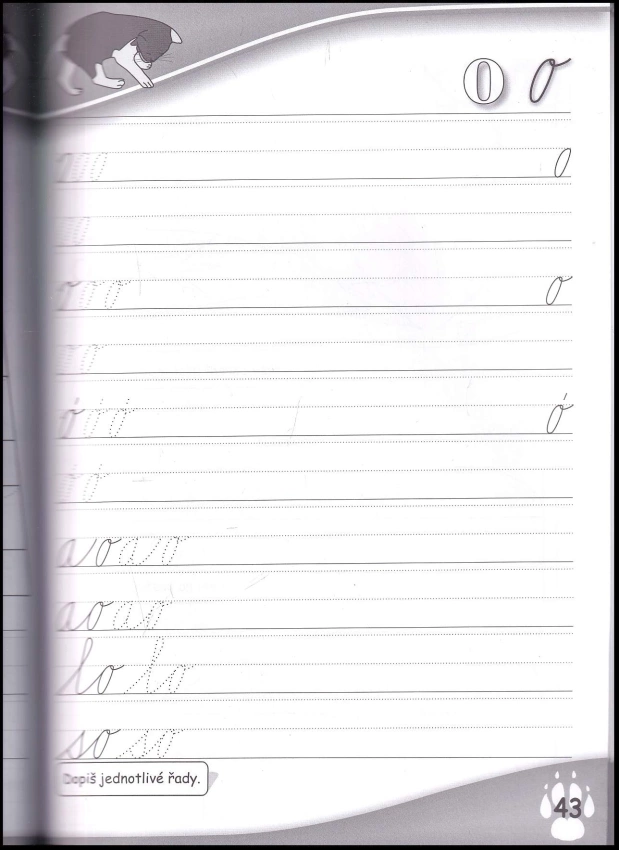 O o
o o o o
o o o o
o o o
ó ó ó ó
ó ó
a o a o
a o a o
lo lo
so so
Dopiš jednotlivé řady.
43